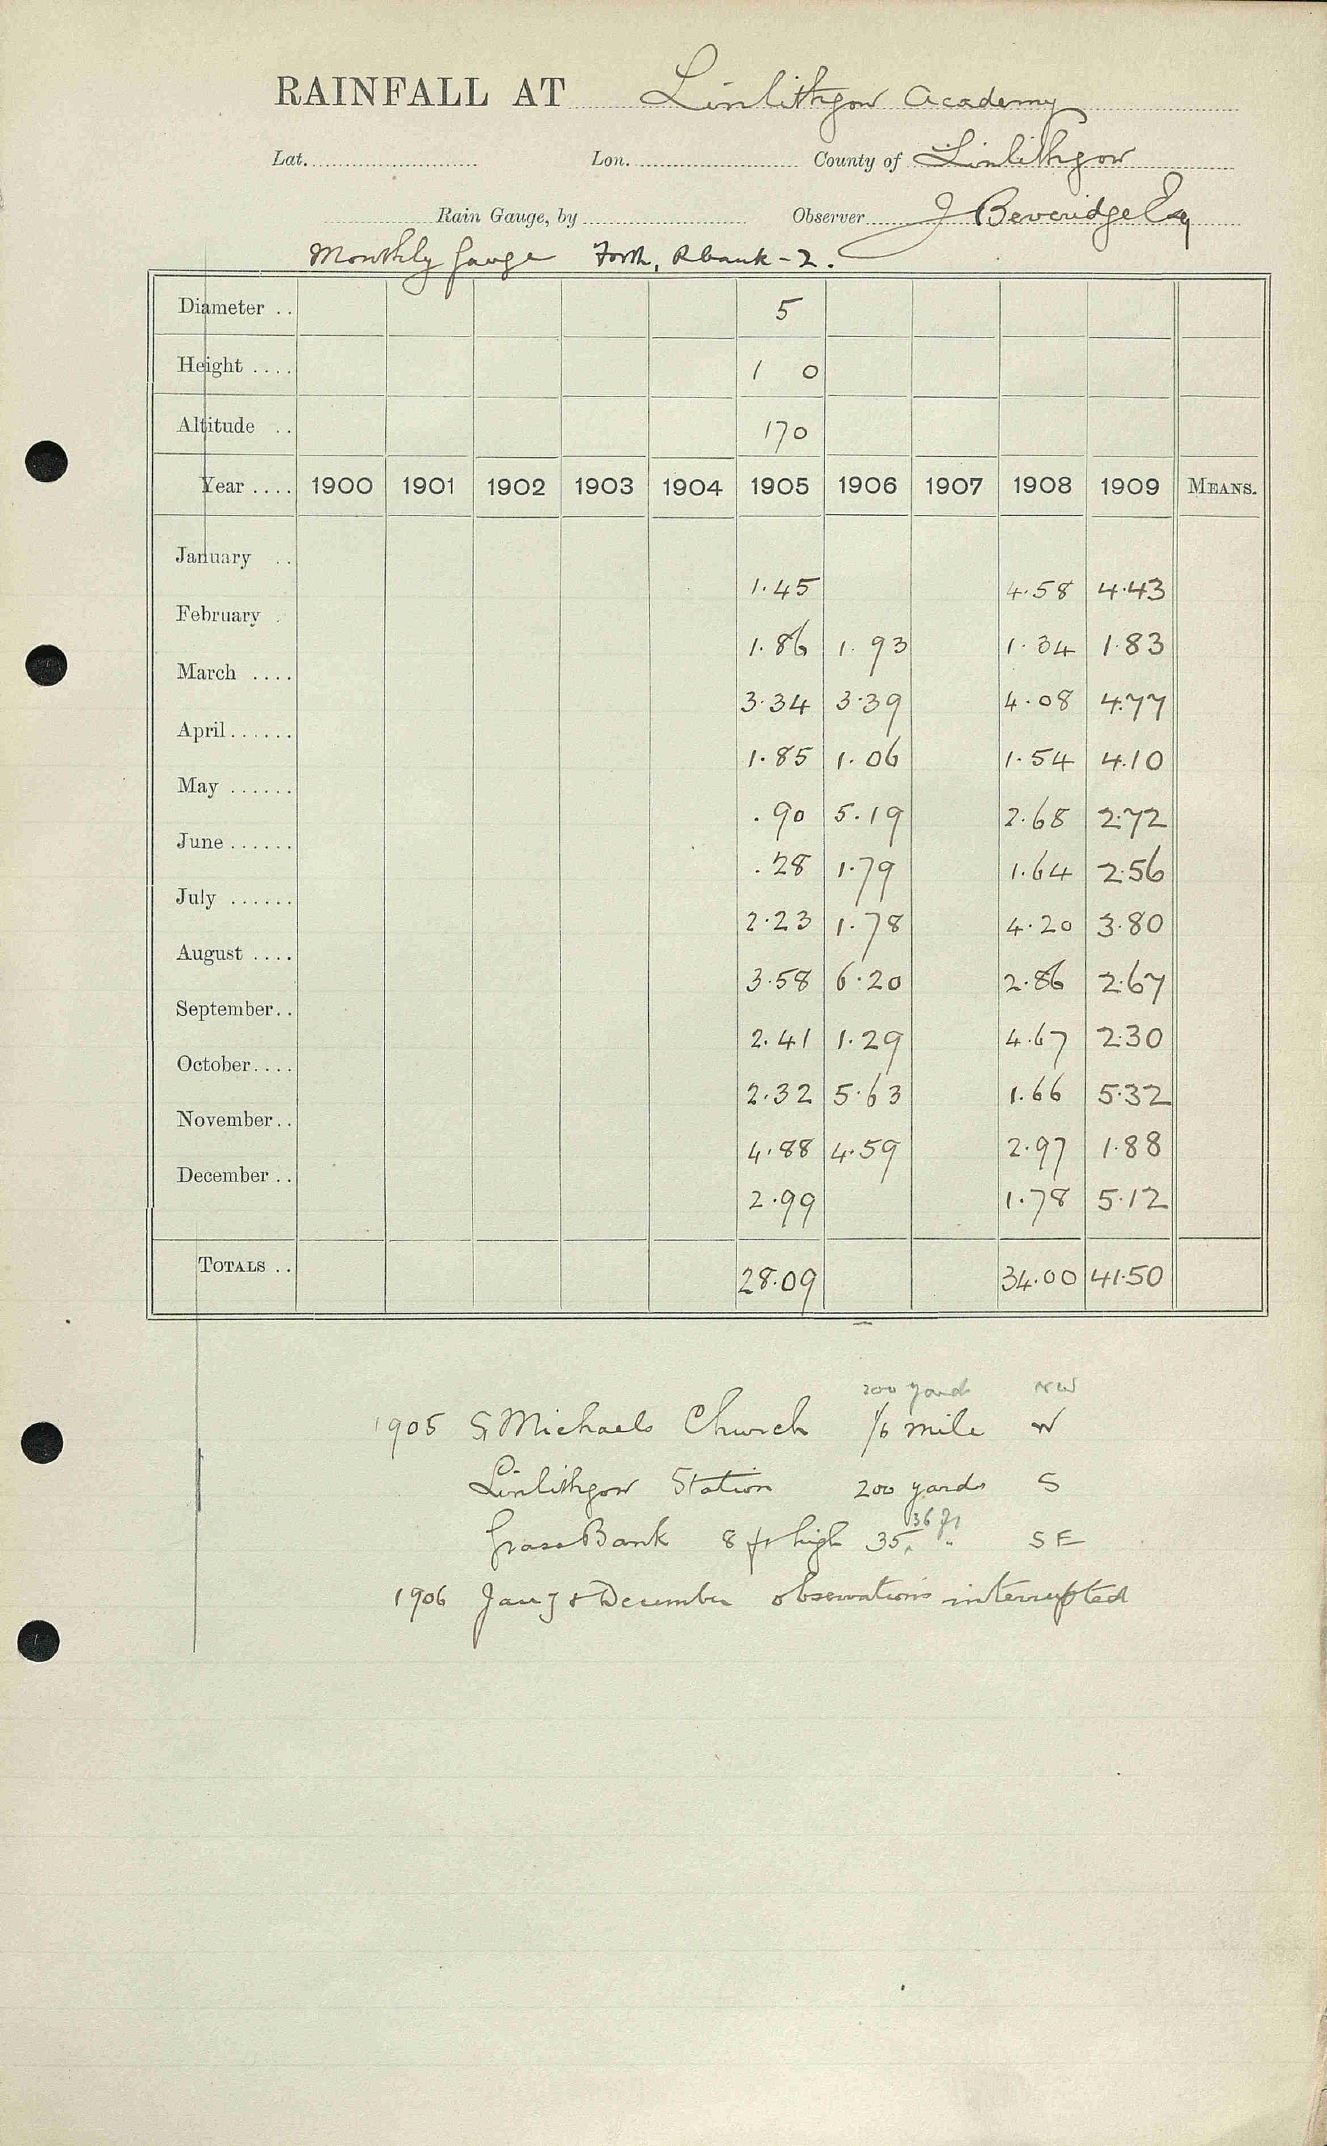 RAINFALL AT Linlithgow Academy
Lat. Lon. County of Linlithgow
Rain Gauge, by Observer J Beveridge Esq
Monthly Gauge Forth, Rbank - 2.
Diameter .. 5
Height .... 1 0
Altitude .. 170
Year .... 1900 1901 1902 1903 1904 1905 1906 1907 1908 1909 MEANS.
January .. 1.45 4.58 4.43
February . 1.86 1.93 1.34 1.83
March .... 3.34 3.39 4.08 4.77
April...... 1.85 1.06 1.54 4.10
May ...... .90 5.19 2.68 2.72
June...... .28 1.79 1.64 2.56
July ...... 2.23 1.78 4.20 3.80
August .... 3.58 6.20 2.86 2.67
September.. 2.41 1.29 4.67 2.30
October.... 2.32 5.63 1.66 5.32
November.. 4.88 4.59 2.97 1.88
December .. 2.99 1.78 5.12
TOTALS .. 28.09 34.00 41.50
200 yards NW
1905 St Michaels Church 1/6 mile W
Linlithgow Station 200 yards S
36 ft
Grass Bank 8 ft high 35 " SE
1906 Jany & December observations interrupted